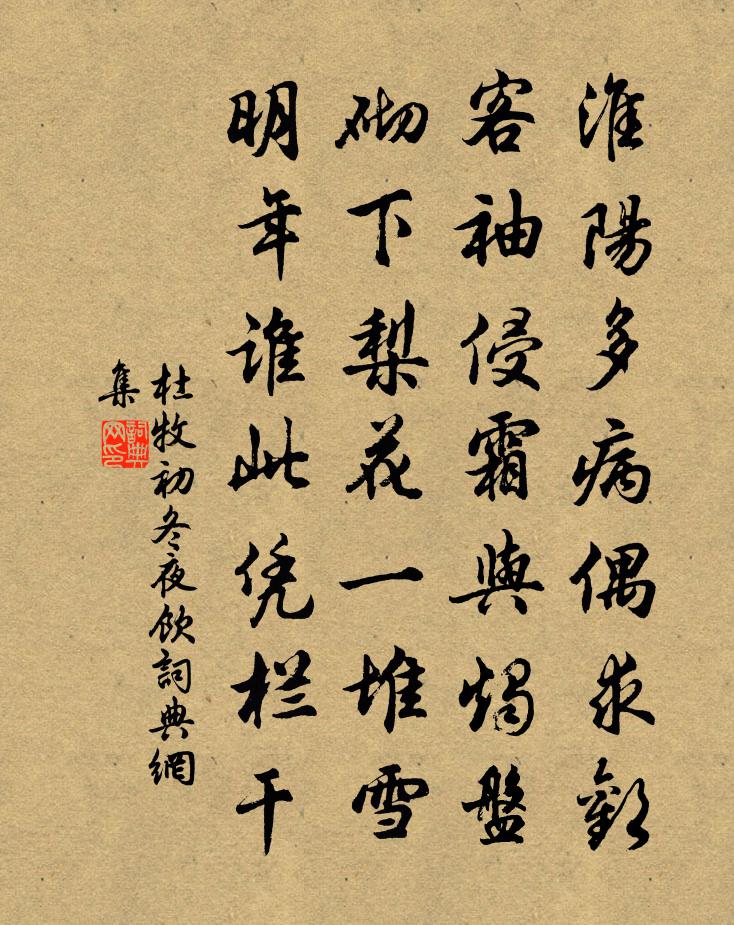 淮陽多病偶求歡
客袖侵霜與燭盤
砌下梨花一堆雪
明年誰此凭栏干
杜牧初冬夜飲詞典網
集
詞典
网印